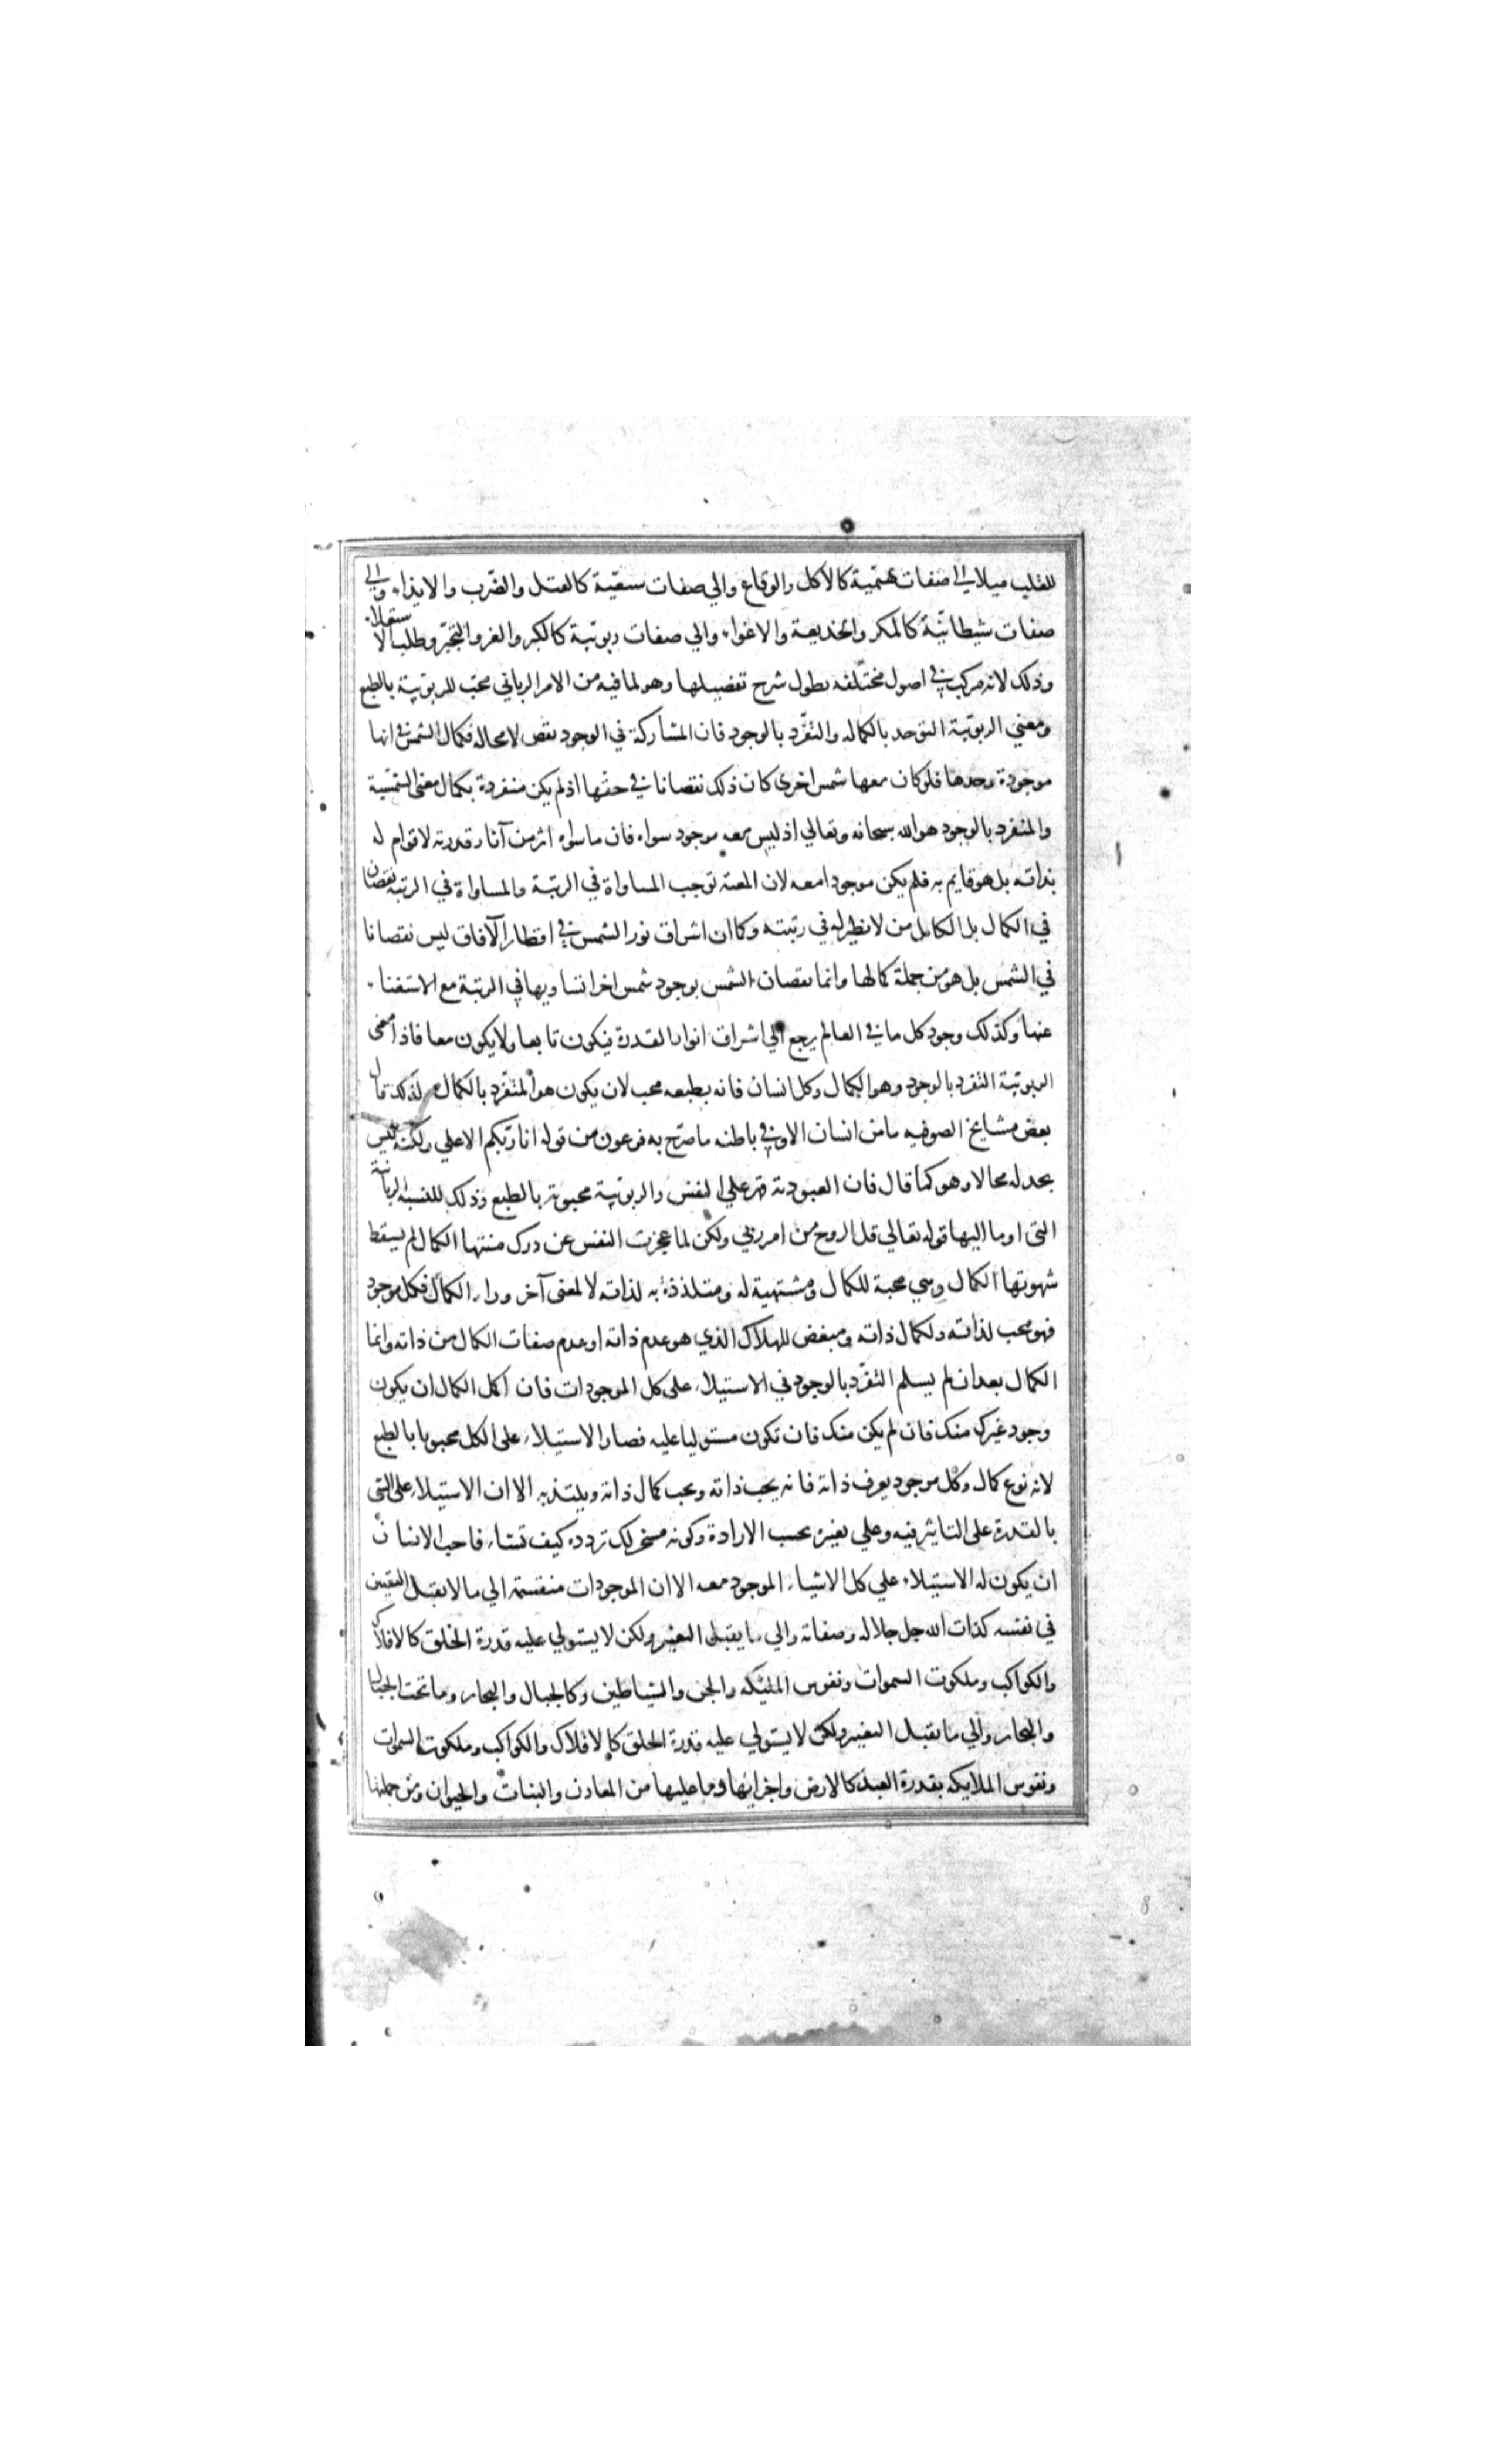 للقلب ميلا الى صفات بهيمية كالاكل والوقاع والي صفات سبعية كالقتل والضرب والايذاء والي
صفات شيطانية كالمكر والخديعة والاغواء والي صفات ربوبية كالكبر والعز والتجبر وطلب الاستعلاء
وذلك لانه مركب في اصول مختلفه يطول شرح تفصيلها وهو لما فيه من الامر الرباني محب للربوبية بالطبع
ومعني الربوبية التوحد بالكمال والتفرد بالوجود فان المشاركة في الوجود نقص لا محاله فكمال الشمس في انها
موجودة وحدها فلو كان معها شمس اخرى كان ذلك نقصانا في حقها اذ لم يكن منفردة بكمال معنى الشمسية
والمنفرد بالوجود هو الله سبحانه وتعالي اذ ليس معه موجود سواه فان ما سواه اثر من آثار قدرته لا قوام له
بذاته بل هو قايم به فلم يكن موجودا معه لان المعية توجب المساواة في الرتبة والمساواة في الرتبة نقصان
في الكمال بل الكامل من لا نظير له في رتبته وكما ان اشراق نور الشمس في اقطار الآفاق ليس نقصانا
في الشمس بل هو من جملة كمالها وانما نقصان الشمس بوجود شمس اخرا تساويها في الرتبة مع الاستغناء
عنها وكذلك وجود كل ما في العالم يرجع الي اشراق انوار القدرة فيكون تابعا ولا يكون معا فاذا معنى
الربوبية التفرد بالوجود وهو الكمال وكل انسان فانه بطبعه محب لان يكون هو المتفرد بالكمال لذلك قال
بعض مشايخ الصوفيه ما من انسان الا وفي باطنه ما صرح به فرعون من قوله انا ربكم الاعلي ولكنه ليس
يجد له مجالا وهو كما قال فان العبودية قهر علي النفس والربوبية محبوبة بالطبع وذلك للنسبة الربانية
التي اوما اليها قوله تعالي قل الروح من امر ربي ولكن لما عجزت النفس عن درك منتها الكمال لم يسقط
شهوتها الكمال وهي محبة للكمال ومشتهية له ومتلذذة به لذاته لا لمعنى آخر وراء الكمال فكل موجود
فهو محب لذاته ولكمال ذاته ومبغض للهلاك الذي هو عدم ذاته او عدم صفات الكمال من ذاته وانما
الكمال بعد ان لم يسلم التفرد بالوجود في الاستيلاء على كل الموجودات فان اكمل الكمال ان يكون
وجود غيرك منك فان لم يكن منك فان تكون مستوليا عليه فصار الاستيلاء على الكل محبوبا بالطبع
لانه نوع كمال وكل موجود يعرف ذاته فانه يحب ذاته ويحب كمال ذاته ويلتذ به الا ان الاستيلاء على الشي
بالقدرة على التاثير فيه وعلي تغييره بحسب الارادة وكونه مسخر لك تردده كيف تشاء فاحب الانسان
ان يكون له الاستيلاء علي كل الاشياء الموجود معه الا ان الموجودات منقسمة الي ما لا يقبل التغيير
في نفسه كذات الله جل جلاله وصفاته والي ما يقبل التغيير ولكن لا يستولي عليه قدرة الخلق كالافلاك
والكواكب وملكوت السموات ونفوس الملئكه والجن والشياطين وكالجبال والبحار وما تحت الجبال
والبحار والي ما يقبل التغيير ولكن لا يستولي عليه قدرة الخلق كالافلاك والكواكب وملكوت السموات
ونفوس الملايكه بقدرة العبد كالارض واجزايها وما عليها من المعادن والنبات والحيوان ومن جملتها